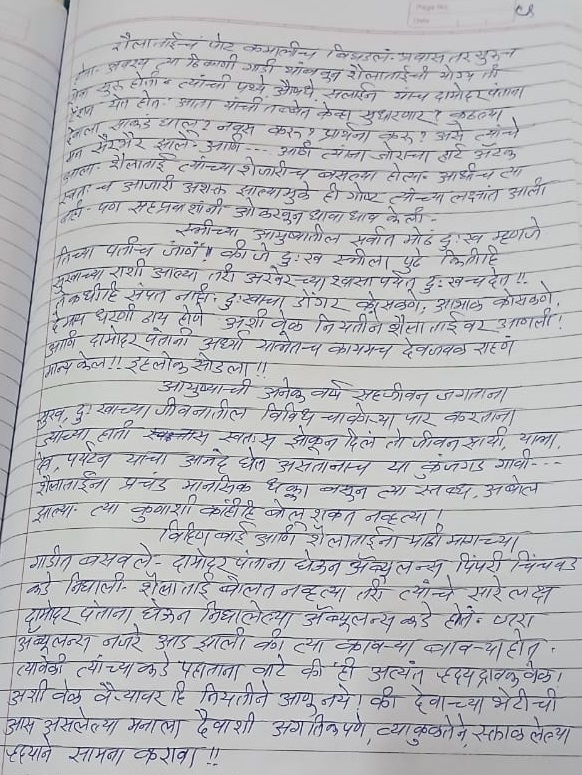 शैलाताईचं पोट कमालीच बिघडलं. प्रवास तर सुरूच
होता. अवस्थ त्या ठिकाणी गाडी थांबवून शैलाताईची योग्य ती
सेवा सुरू होती. त्यांची पथ्ये औषधे, सलाईन यांच दामोदर पंताना
येत होत. आता यांची तब्येत केव्हा सुधारणार? कुठल्या
देवाला साकडं घालू? नवस करू? प्रार्थना करू? असे त्यांचे
मन सैरभैर झाले. आणि --- आणि त्यांना जोराचा हार्ट ॲटॅक
आला. शैलाताई त्यांच्या शेजारीच बसल्या होत्या. आधीच त्या
स्वतःच आजारी अशक्त झाल्यामुळे ही गोष्ट त्यांच्या लक्षांत आली
नाही. पण सहप्रवाशांनी ओळखून धावाधाव केली.
स्त्रीच्या आयुष्यातील सर्वात मोठं दुःख म्हणजे
तिच्या पतीच जाणं! की जे दुःख स्त्रीला पुढे कितीहि
सुखाच्या राशी आल्या तरी अखेरच्या श्वसापर्यंत दुःखच देत!!
ते कधीहि संपत नाही. दुःखाचा डोंगर कोसळणे, आभाळ कोसळणे
हे गाव धरणी ठाय होणे अशी वेळ नियतीने शैलाताईवर आणली!
आणि दामोदर पंतानी अर्ध्या यात्रेतच कायमच देवाजवळ राहणं
मान्य केल!! इहलोक सोडला!!
आयुष्याची अनेक वर्ष सहजीवन जगताना
सुख, दुःखाच्या जीवनातील विविध चाकोऱ्या पार करताना
ज्याच्या हाती स्वतःस झोकून दिल तो जीवन साथी, यात्रा,
देव, पर्यटन यांचा आनंद घेत असतानाच या कुंजगड गावी---
शैलाताईना प्रचंड मानसिक धक्का बसून त्या स्तब्ध, अबोल
झाल्या. त्या कुणाशी कांहीहि बोलू शकत नव्हत्या!
विहिण बाई आणि शैलाताईना पाठी मागच्या
गाडीत बसवले. दामोदर पंताना घेऊन ॲम्ब्यूलन्स पिंपरी चिंचवड
कडे निघाली. शैलाताई बोलत नव्हत्या तरी त्यांचे सारे लक्ष
दामोदर पंताना घेऊन निघालेल्या ॲम्ब्यूलन्स कडे होते. जरा
ॲम्ब्यूलन्स नजरे आड झाली की त्या कावऱ्या बावऱ्या होत.
त्यावेळी त्यांच्याकडे पहाताना वाटे की ही अत्यंत हृदयद्रावक वेळ!
अशी वेळ वैऱ्यावर हि नियतीने आणू नये! की देवाच्या भेटीची
आस असलेल्या मनाला दैवाशी अगतिकपणे, व्याकुळतेने,
हृदयाने सामना करावा!!